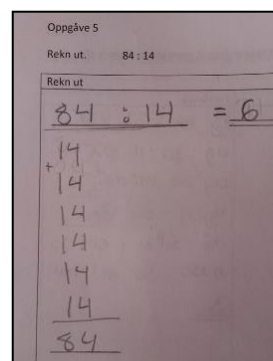 Oppgåve 5
Rekn ut. 84 : 14
Rekn ut
84 : 14 = 6
14
+ 14
14
14
14
14
84